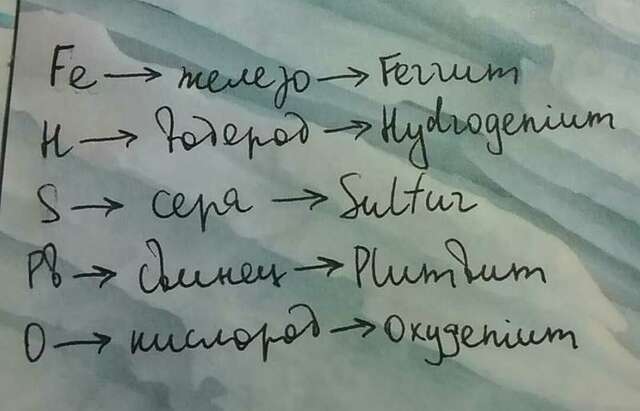 Fe → железо → Ferrum
H → Водород → Hydrogenium
S → сера → Sulfur
Pb → свинец → Plumbum
O → кислород → Oxygenium